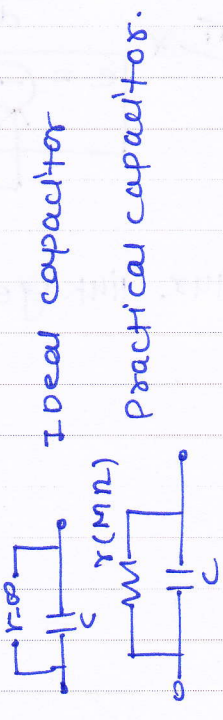 r=∞
C
Ideal capacitor
r(MΩ)
C
practical capacitor.